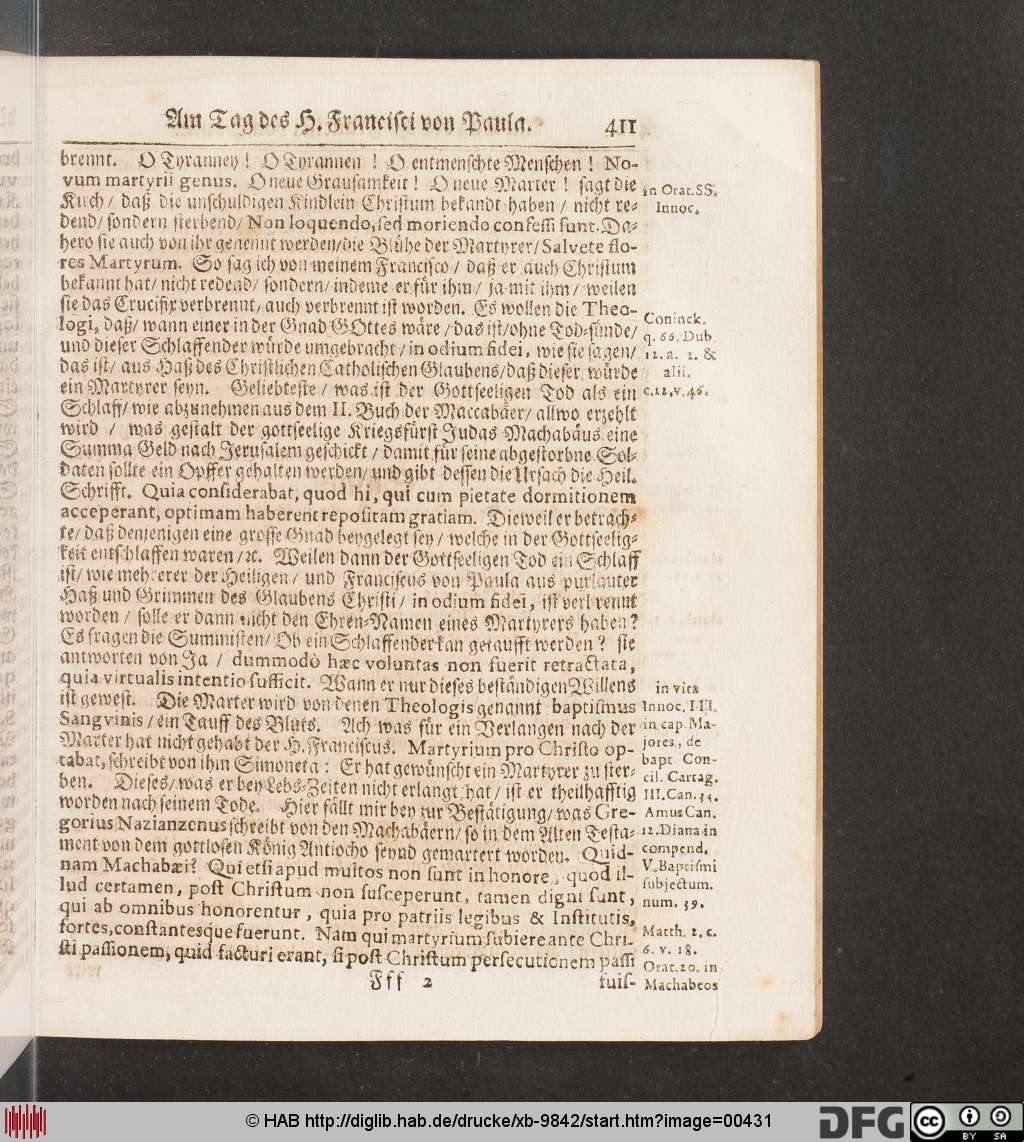 Am Tag des H. Francisci von Paula. 411
brennt. O Tyranney! O Tyrannen! O entmenschte Menschen! No-
vum martyrii genus. O neue Grausamkeit! O neue Marter! sagt die
Kirch/ daß die unschuldigen Kindlein Christum bekandt haben/ nicht re-
dend/ sondern sterbend/ Non loquendo, sed moriendo confessi sunt. Da-
hero sie auch von ihr genennt werden/ die Blühe der Martyrer/ Salvete flo-
res Martyrum. So sag ich von meinem Francisco/ daß er auch Christum
bekannt hat/ nicht redend/ sondern/ indeme er für ihm/ ja mit ihm/ weilen
sie das Crucifix verbrennt/ auch verbrennt ist worden. Es wollen die Theo-
logi, daß/ wann einer in der Gnad GOttes wäre/ das ist/ ohne Tod-sünde/
und dieser Schlaffender würde umgebracht/ in odium fidei, wie sie sagen/
das ist/ aus Haß des Christlichen Catholischen Glaubens/ daß dieser würde
ein Martyrer seyn. Geliebteste/ was ist der Gottseeligen Tod als ein
Schlaff/ wie abzunehmen aus dem II. Buch der Maccabäer/ allwo erzehlt
wird/ was gestalt der gottseelige Kriegsfürst Judas Machabäus eine
Summa Geld nach Jerusalem geschickt/ damit für seine abgestorbne Sol-
daten sollte ein Opffer gehalten werden/ und gibt dessen die Ursach die Heil.
Schrifft. Quia considerabat, quod hi, qui cum pietate dormitionem
acceperant, optimam haberent repositam gratiam. Dieweil er betrach-
te/ daß denjenigen eine grosse Gnad beygelegt sey/ welche in der Gottseelig-
keit entschlaffen waren/ ꝛc. Weilen dann der Gottseeligen Tod ein Schlaff
ist/ wie mehrerer der Heiligen/ und Franciscus von Paula aus purlauter
Haß und Grimmen des Glaubens Christi/ in odium fidei, ist verbrennt
worden/ solle er dann nicht den Ehren-Namen eines Martyrers haben?
Es fragen die Summisten/ Ob ein Schlaffender kan getaufft werden? sie
antworten von Ja/ dummodò hæc voluntas non fuerit retractata,
quia virtualis intentio sufficit. Wann er nur dieses beständigen Willens
ist gewest. Die Marter wird von denen Theologis genannt baptismus
Sangvinis/ ein Tauff des Bluts. Ach was für ein Verlangen nach der
Marter hat nicht gehabt der H. Franciscus. Martyrium pro Christo op-
tabat, schreibt von ihm Simoneta: Er hat gewünscht ein Martyrer zu ster-
ben. Dieses/ was er bey Lebs-Zeiten nicht erlangt hat/ ist er theilhafftig
worden nach seinem Tode. Hier fällt mir bey zur Bestätigung/ was Gre-
gorius Nazianzenus schreibt von den Machabäern/ so in dem Alten Testa-
ment von dem gottlosen König Antiocho seynd gemartert worden. Quid-
nam Machabæi? Qui etsi apud multos non sunt in honore, quod il-
lud certamen, post Christum non susceperunt, tamen digni sunt,
qui ab omnibus honorentur, quia pro patriis legibus & Institutis,
fortes, constantesque fuerunt. Nam qui martyrium subiere ante Chri-
sti passionem, quid facturi erant, si post Christum persecutionem passi
Fff 2 fuis-
in Orat. SS.
Innoc.
Coninck.
q. 66. Dub.
12. a. 2. &
alii.
c. 12. v. 46.
in vita
Innoc. III.
in cap. Ma-
jores, de
bapt. Con-
cil. Cartag.
III. Can. 34.
Amus Can.
12. Diana in
compend.
V. Baptismi
subjectum.
num. 39.
Matth. 2. c.
6. v. 18.
Orat. 20. in
Machabeos
© HAB http://diglib.hab.de/drucke/xb-9842/start.htm?image=00431
DFG
cc
BY SA